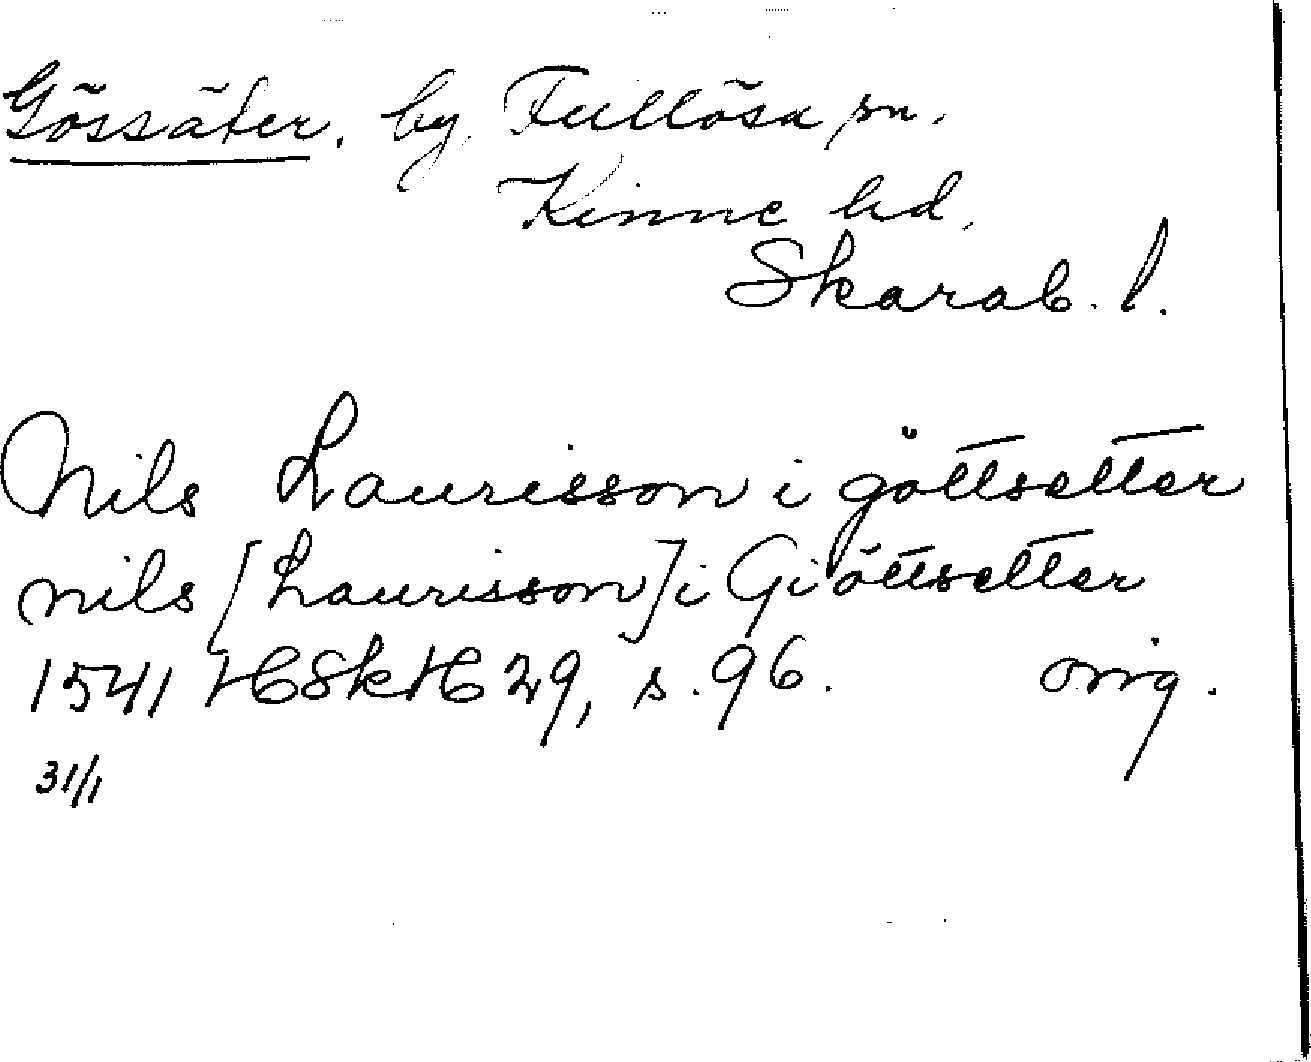 Gössäter. by, Fullösa sn.
Kinne hd.
Skarab. l.
Nils Laurisson i göttsetter
nils [Laurisson] i Giöttsetter
1541 HSkH 29, s. 96. orig.
31/1